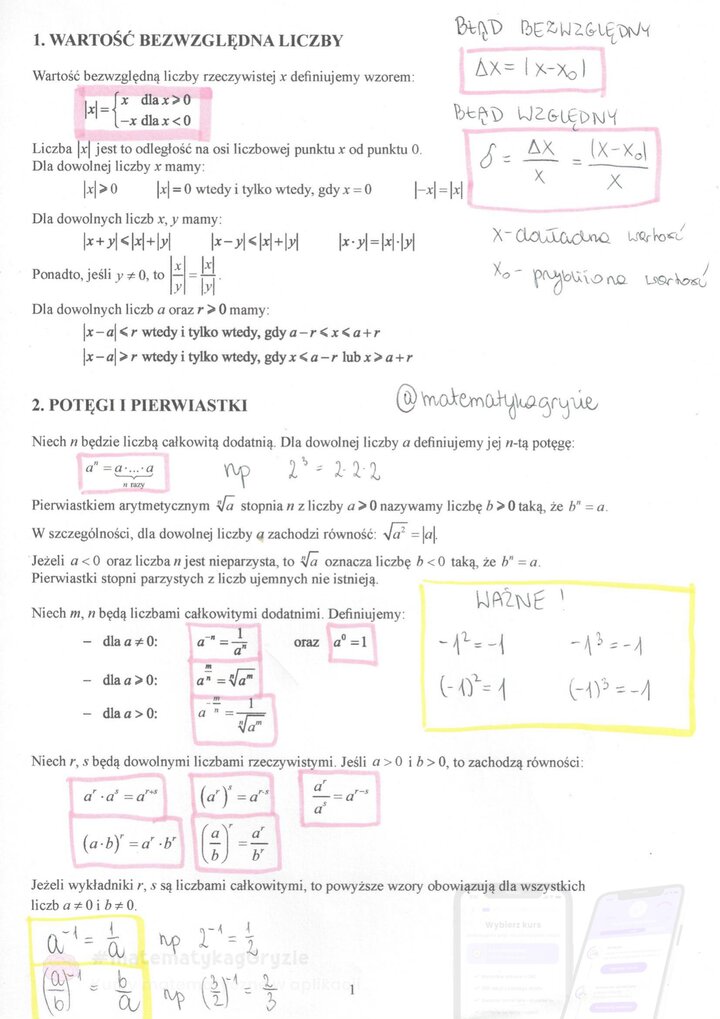 1. WARTOŚĆ BEZWZGLĘDNA LICZBY
BŁĄD BEZWZGLĘDNY
Δx = |x-x₀|
Wartość bezwzględną liczby rzeczywistej x definiujemy wzorem:
|x| = { x dla x ≥ 0
−x dla x < 0
BŁĄD WZGLĘDNY
δ = Δx/x = |x-x₀|/x
Liczba |x| jest to odległość na osi liczbowej punktu x od punktu 0.
Dla dowolnej liczby x mamy:
|x| ≥ 0 |x| = 0 wtedy i tylko wtedy, gdy x = 0 |−x| = |x|
x - dokładna wartość
x₀ - przybliżona wartość
Dla dowolnych liczb x, y mamy:
|x + y| ≤ |x| + |y| |x − y| ≤ |x| + |y| |x · y| = |x| · |y|
Ponadto, jeśli y ≠ 0, to |x/y| = |x|/|y|.
Dla dowolnych liczb a oraz r ≥ 0 mamy:
|x − a| ≤ r wtedy i tylko wtedy, gdy a − r ≤ x ≤ a + r
|x − a| ≥ r wtedy i tylko wtedy, gdy x ≤ a − r lub x ≥ a + r
@matematykagryzie
2. POTĘGI I PIERWIASTKI
Niech n będzie liczbą całkowitą dodatnią. Dla dowolnej liczby a definiujemy jej n-tą potęgę:
aⁿ = a · ... · a
n razy
np 2³ = 2·2·2
Pierwiastkiem arytmetycznym ⁿ√a stopnia n z liczby a ≥ 0 nazywamy liczbę b ≥ 0 taką, że bⁿ = a.
W szczególności, dla dowolnej liczby a zachodzi równość: √a² = |a|.
Jeżeli a < 0 oraz liczba n jest nieparzysta, to ⁿ√a oznacza liczbę b < 0 taką, że bⁿ = a.
Pierwiastki stopni parzystych z liczb ujemnych nie istnieją.
Niech m, n będą liczbami całkowitymi dodatnimi. Definiujemy:
– dla a ≠ 0: a⁻ⁿ = 1/aⁿ oraz a⁰ = 1
– dla a ≥ 0: a^(m/n) = ⁿ√aᵐ
– dla a > 0: a^(−m/n) = 1/ⁿ√aᵐ
WAŻNE !
-1² = -1 -1³ = -1
(-1)² = 1 (-1)³ = -1
Niech r, s będą dowolnymi liczbami rzeczywistymi. Jeśli a > 0 i b > 0, to zachodzą równości:
aʳ · aˢ = aʳ⁺ˢ (aʳ)ˢ = aʳ·ˢ aʳ/aˢ = aʳ⁻ˢ
(a · b)ʳ = aʳ · bʳ (a/b)ʳ = aʳ/bʳ
Jeżeli wykładniki r, s są liczbami całkowitymi, to powyższe wzory obowiązują dla wszystkich
liczb a ≠ 0 i b ≠ 0.
a⁻¹ = 1/a np 2⁻¹ = 1/2
(a/b)⁻¹ = b/a np (3/2)⁻¹ = 2/3
#matematykagryzie
Wybierz kurs
1